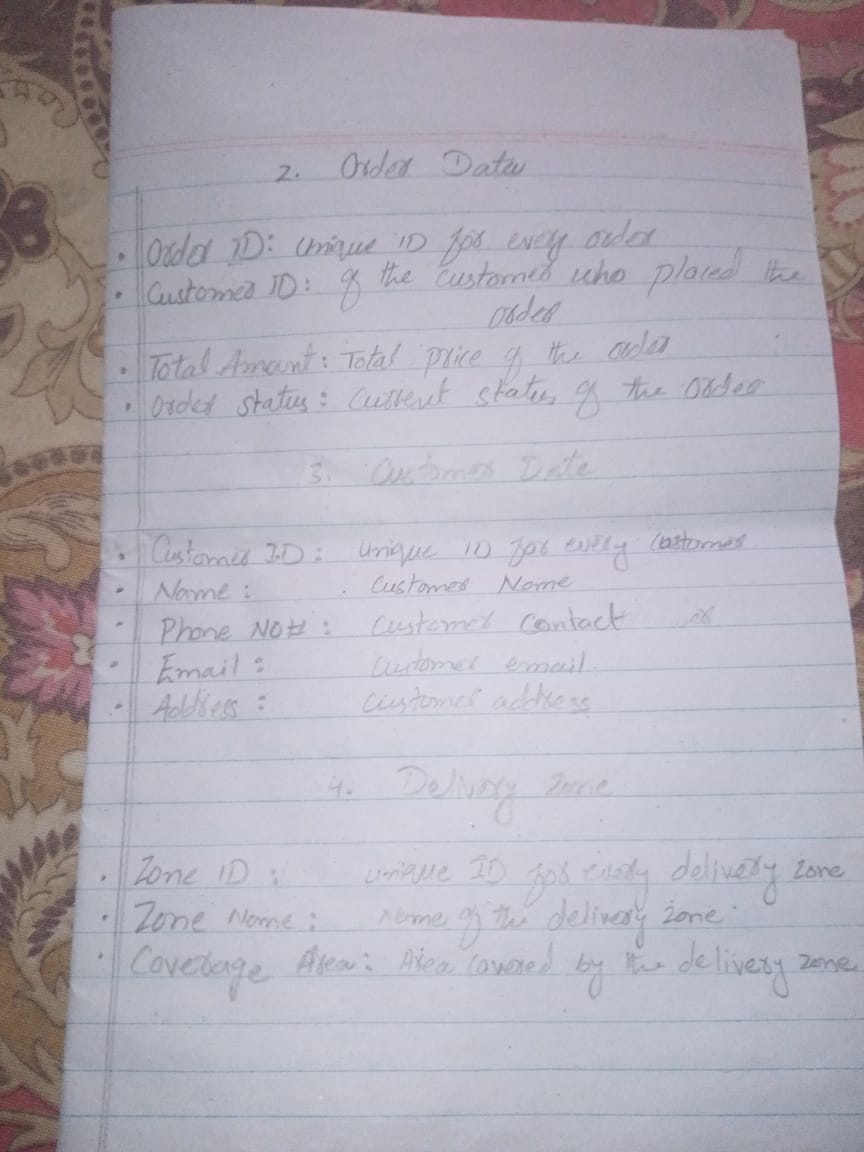 2. Order Data
• Order ID: unique ID for every order
• Customer ID: of the customer who placed the
order
• Total Amount: Total price of the order
• Order status: Current status of the order
3. Customer Data
• Customer I.D: unique ID for every customer
• Name: Customer Name
• Phone NO#: Customer Contact or
• Email: Customer email
• Address: Customer address
4. Delivery Zone
• Zone ID: unique ID for every delivery zone
• Zone Name: Name of the delivery zone
• Coverage Area: Area covered by the delivery zone